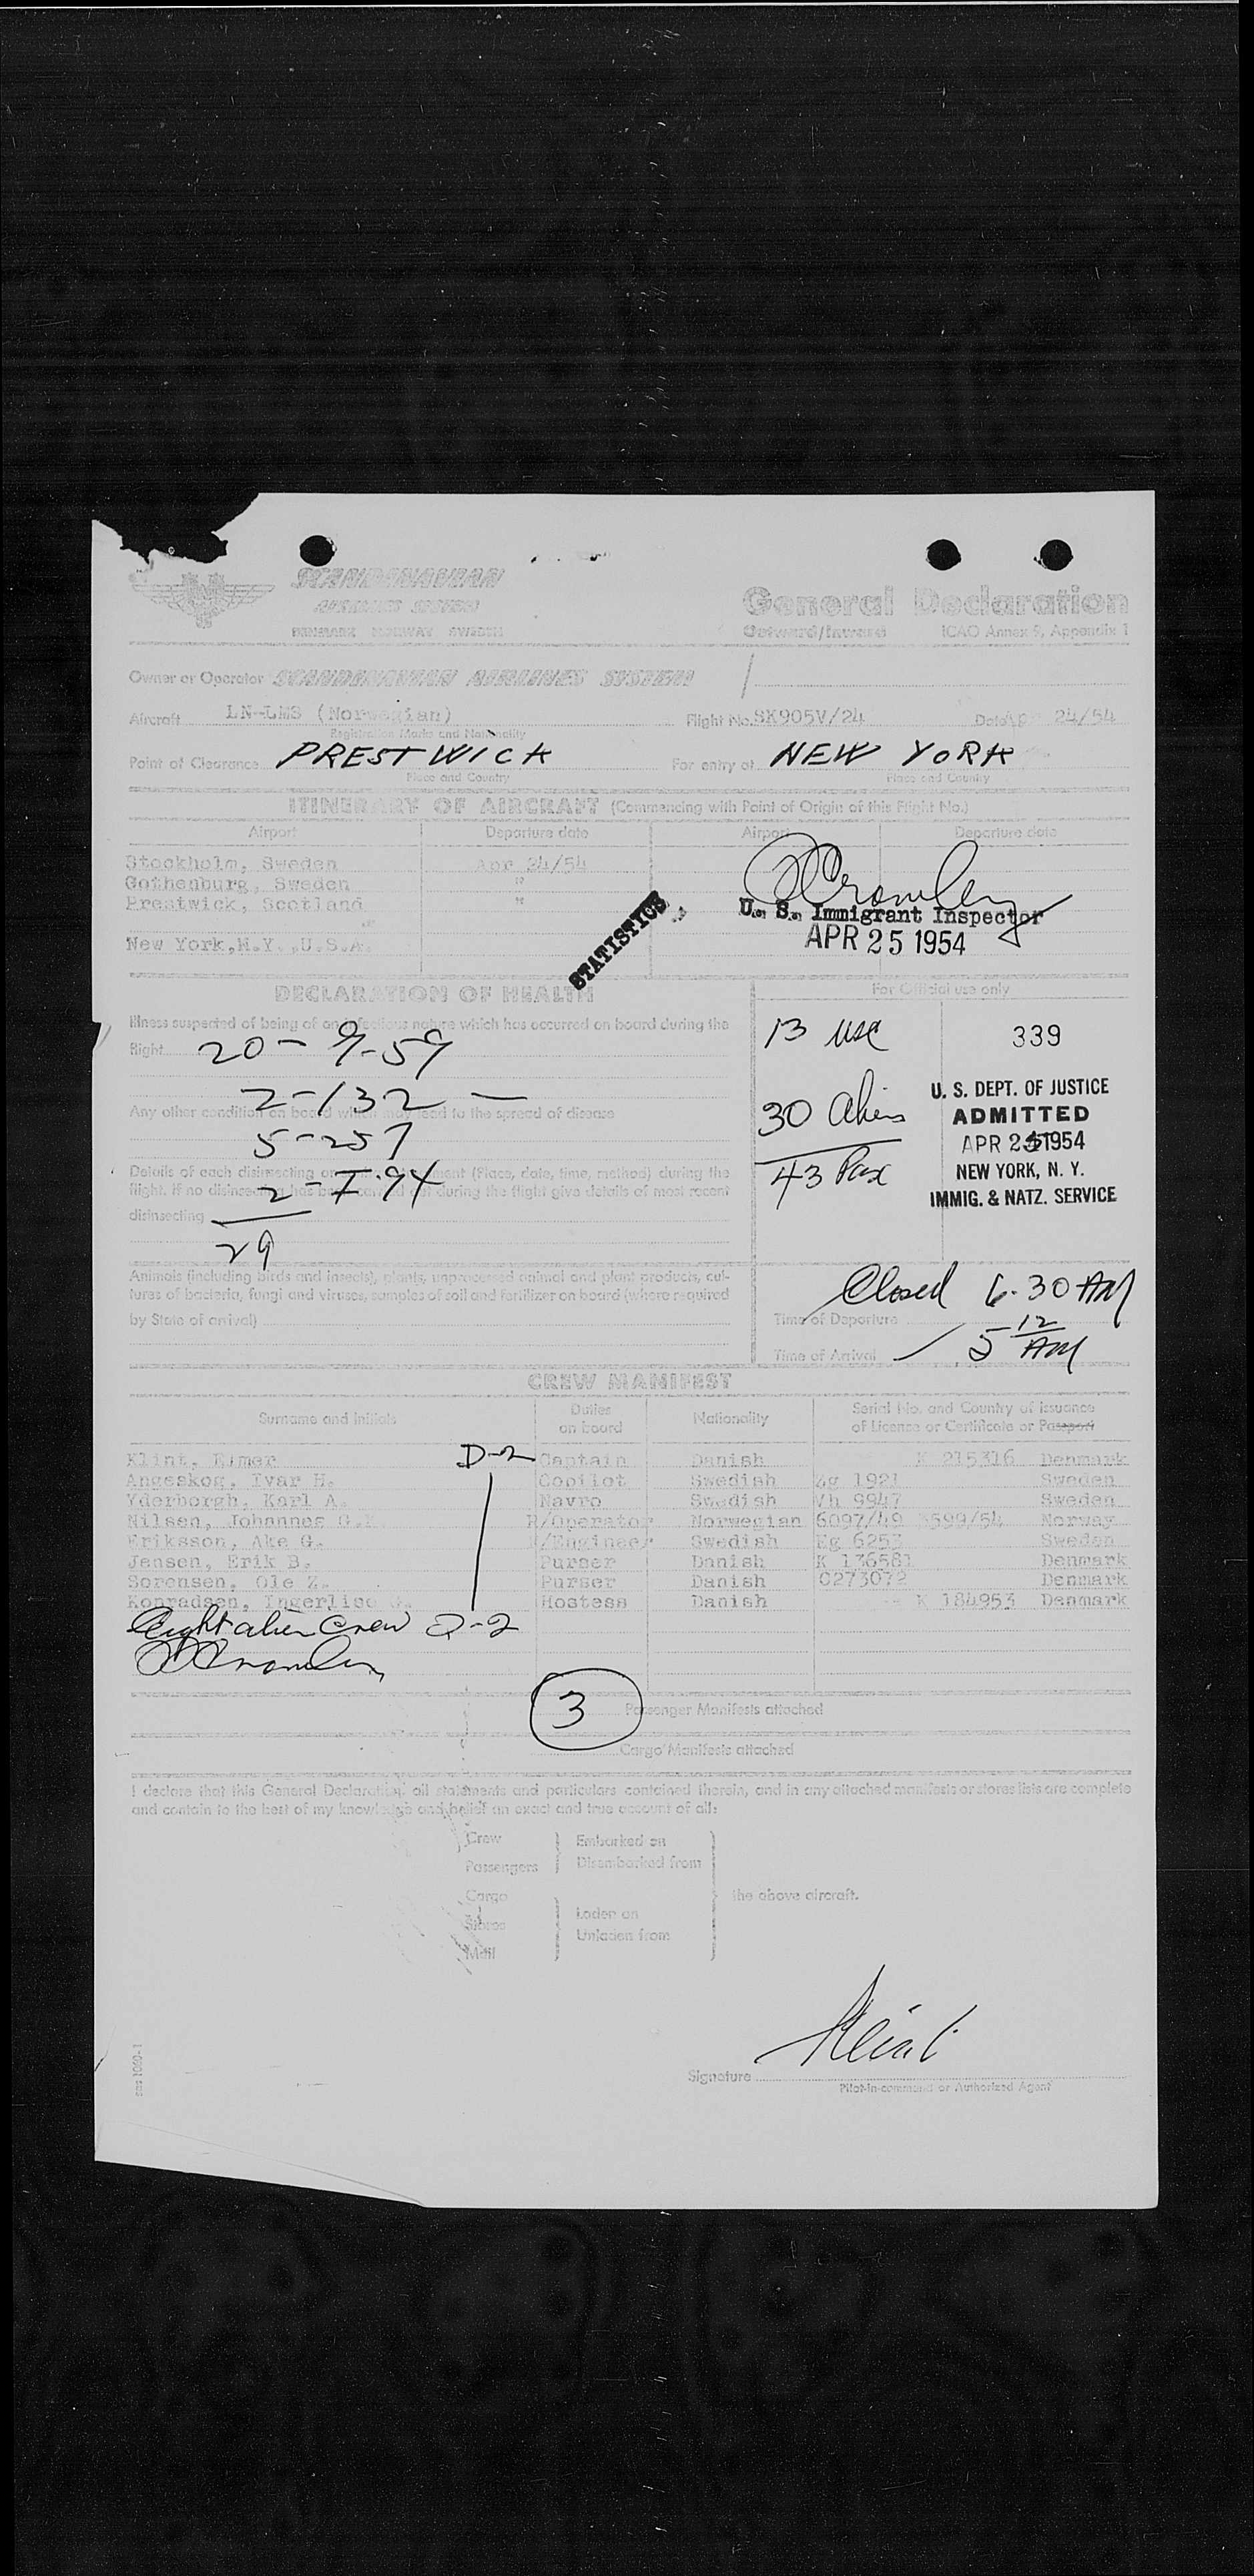 SCANDINAVIAN
AIRLINES SYSTEM
DENMARK NORWAY SWEDEN
General Declaration
Outward/Inward ICAO Annex 9, Appendix 1
Owner or Operator SCANDINAVIAN AIRLINES SYSTEM
Aircraft LN-LMS (Norwegian) Flight No. SK905V/24 Date Apr 24/54
Registration Marks and Nationality
Point of Clearance PRESTWICK For entry at NEW YORK
Place and Country Place and Country
ITINERARY OF AIRCRAFT (Commencing with Point of Origin of this Flight No.)
Airport Departure date Airport Departure date
Stockholm, Sweden Apr 24/54
Gothenburg, Sweden "
Prestwick, Scotland "
New York, N.Y., U.S.A.
STATISTICS
U. S. Immigrant Inspector
APR 25 1954
DECLARATION OF HEALTH
Illness suspected of being of an infectious nature which has occurred on board during the
flight 20 - 9-59
2-132 -
Any other condition on board which may lead to the spread of disease
5-257
Details of each disinsecting or ment (Place, date, time, method) during the
flight. If no disinsecting has been carried out during the flight give details of most recent
disinsecting
2-I-94
29
Animals (including birds and insects), plants, unprocessed animal and plant products, cul-
tures of bacteria, fungi and viruses, samples of soil and fertilizer on board (where required
by State of arrival)
For Official use only
13 usc
30 Aliens
43 Pax
339
U. S. DEPT. OF JUSTICE
ADMITTED
APR 25 1954
NEW YORK, N. Y.
IMMIG. & NATZ. SERVICE
Closed 6.30 AM
Time of Departure
5 12 AM
Time of Arrival
CREW MANIFEST
Surname and initials Duties on board Nationality Serial No. and Country of issuance of Licence or Certificate or Passport
Klint, Elmer D-2 Captain Danish K 215316 Denmark
Angeskog, Ivar H. Copilot Swedish Zg 1921 Sweden
Yderborgh, Karl A. Navro Swedish Vh 9947 Sweden
Nilsen, Johannes G. R/Operator Norwegian 6097/49 3599/54 Norway
Eriksson, Ake G. /Engineer Swedish Eg 6253 Sweden
Jensen, Erik B. Purser Danish K 136581 Denmark
Sorensen, Ole Z. Purser Danish 0273072 Denmark
Konradsen, Ingerlise J. Hostess Danish K 184953 Denmark
Eight alien crew D-2
3 Passenger Manifests attached
Cargo Manifests attached
I declare that this General Declaration, all statements and particulars contained therein, and in any attached manifests or stores lists are complete
and contain to the best of my knowledge and belief an exact and true account of all:
Crew Embarked on
Passengers Disembarked from
Cargo the above aircraft.
Stores Loden on
Mail Unladen from
Klint
Signature
Pilot-in-command or Authorized Agent
sas 1060-1